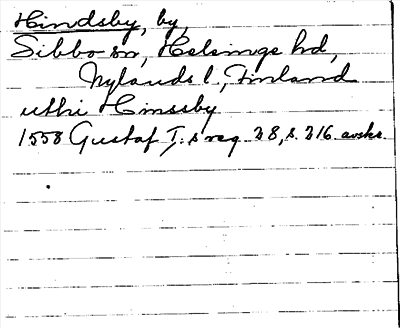 Hindsby, by,
Sibbo sn, Helsinge hd,
Nylands l., Finland
uthi Hinssby
1558 Gustaf I:s reg. 28, s. 216. avskr.